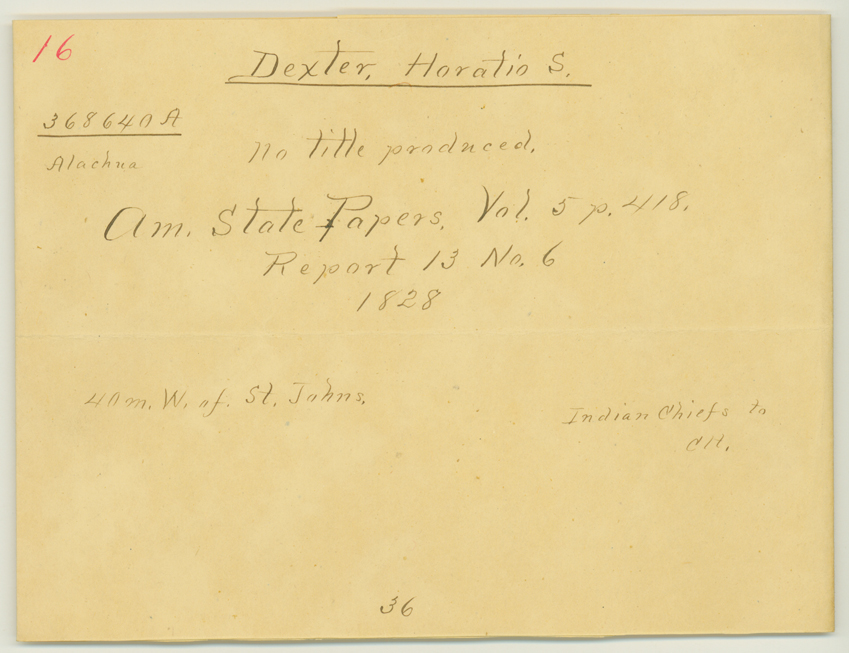 16
Dexter, Horatio S.
368640 A
Alachua
No title produced.
Am. State Papers, Vol. 5 p. 418.
Report 13 No. 6
1828
40 m. W. of. St. Johns.
Indian Chiefs to
Clt.
36